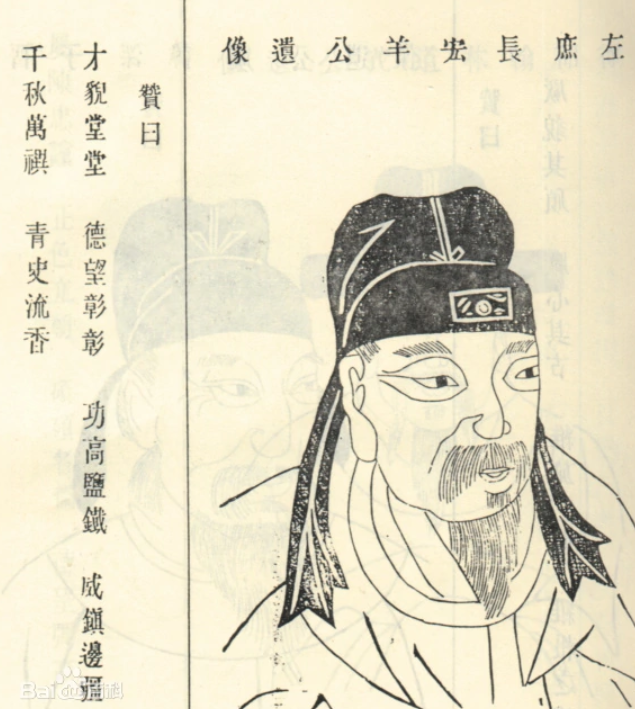 左庶長宏羊公遺像
贊曰
才貌堂堂 德望彰彰 功高鹽鐵 威鎮邊疆
千秋萬禩 青史流香
Bai百科